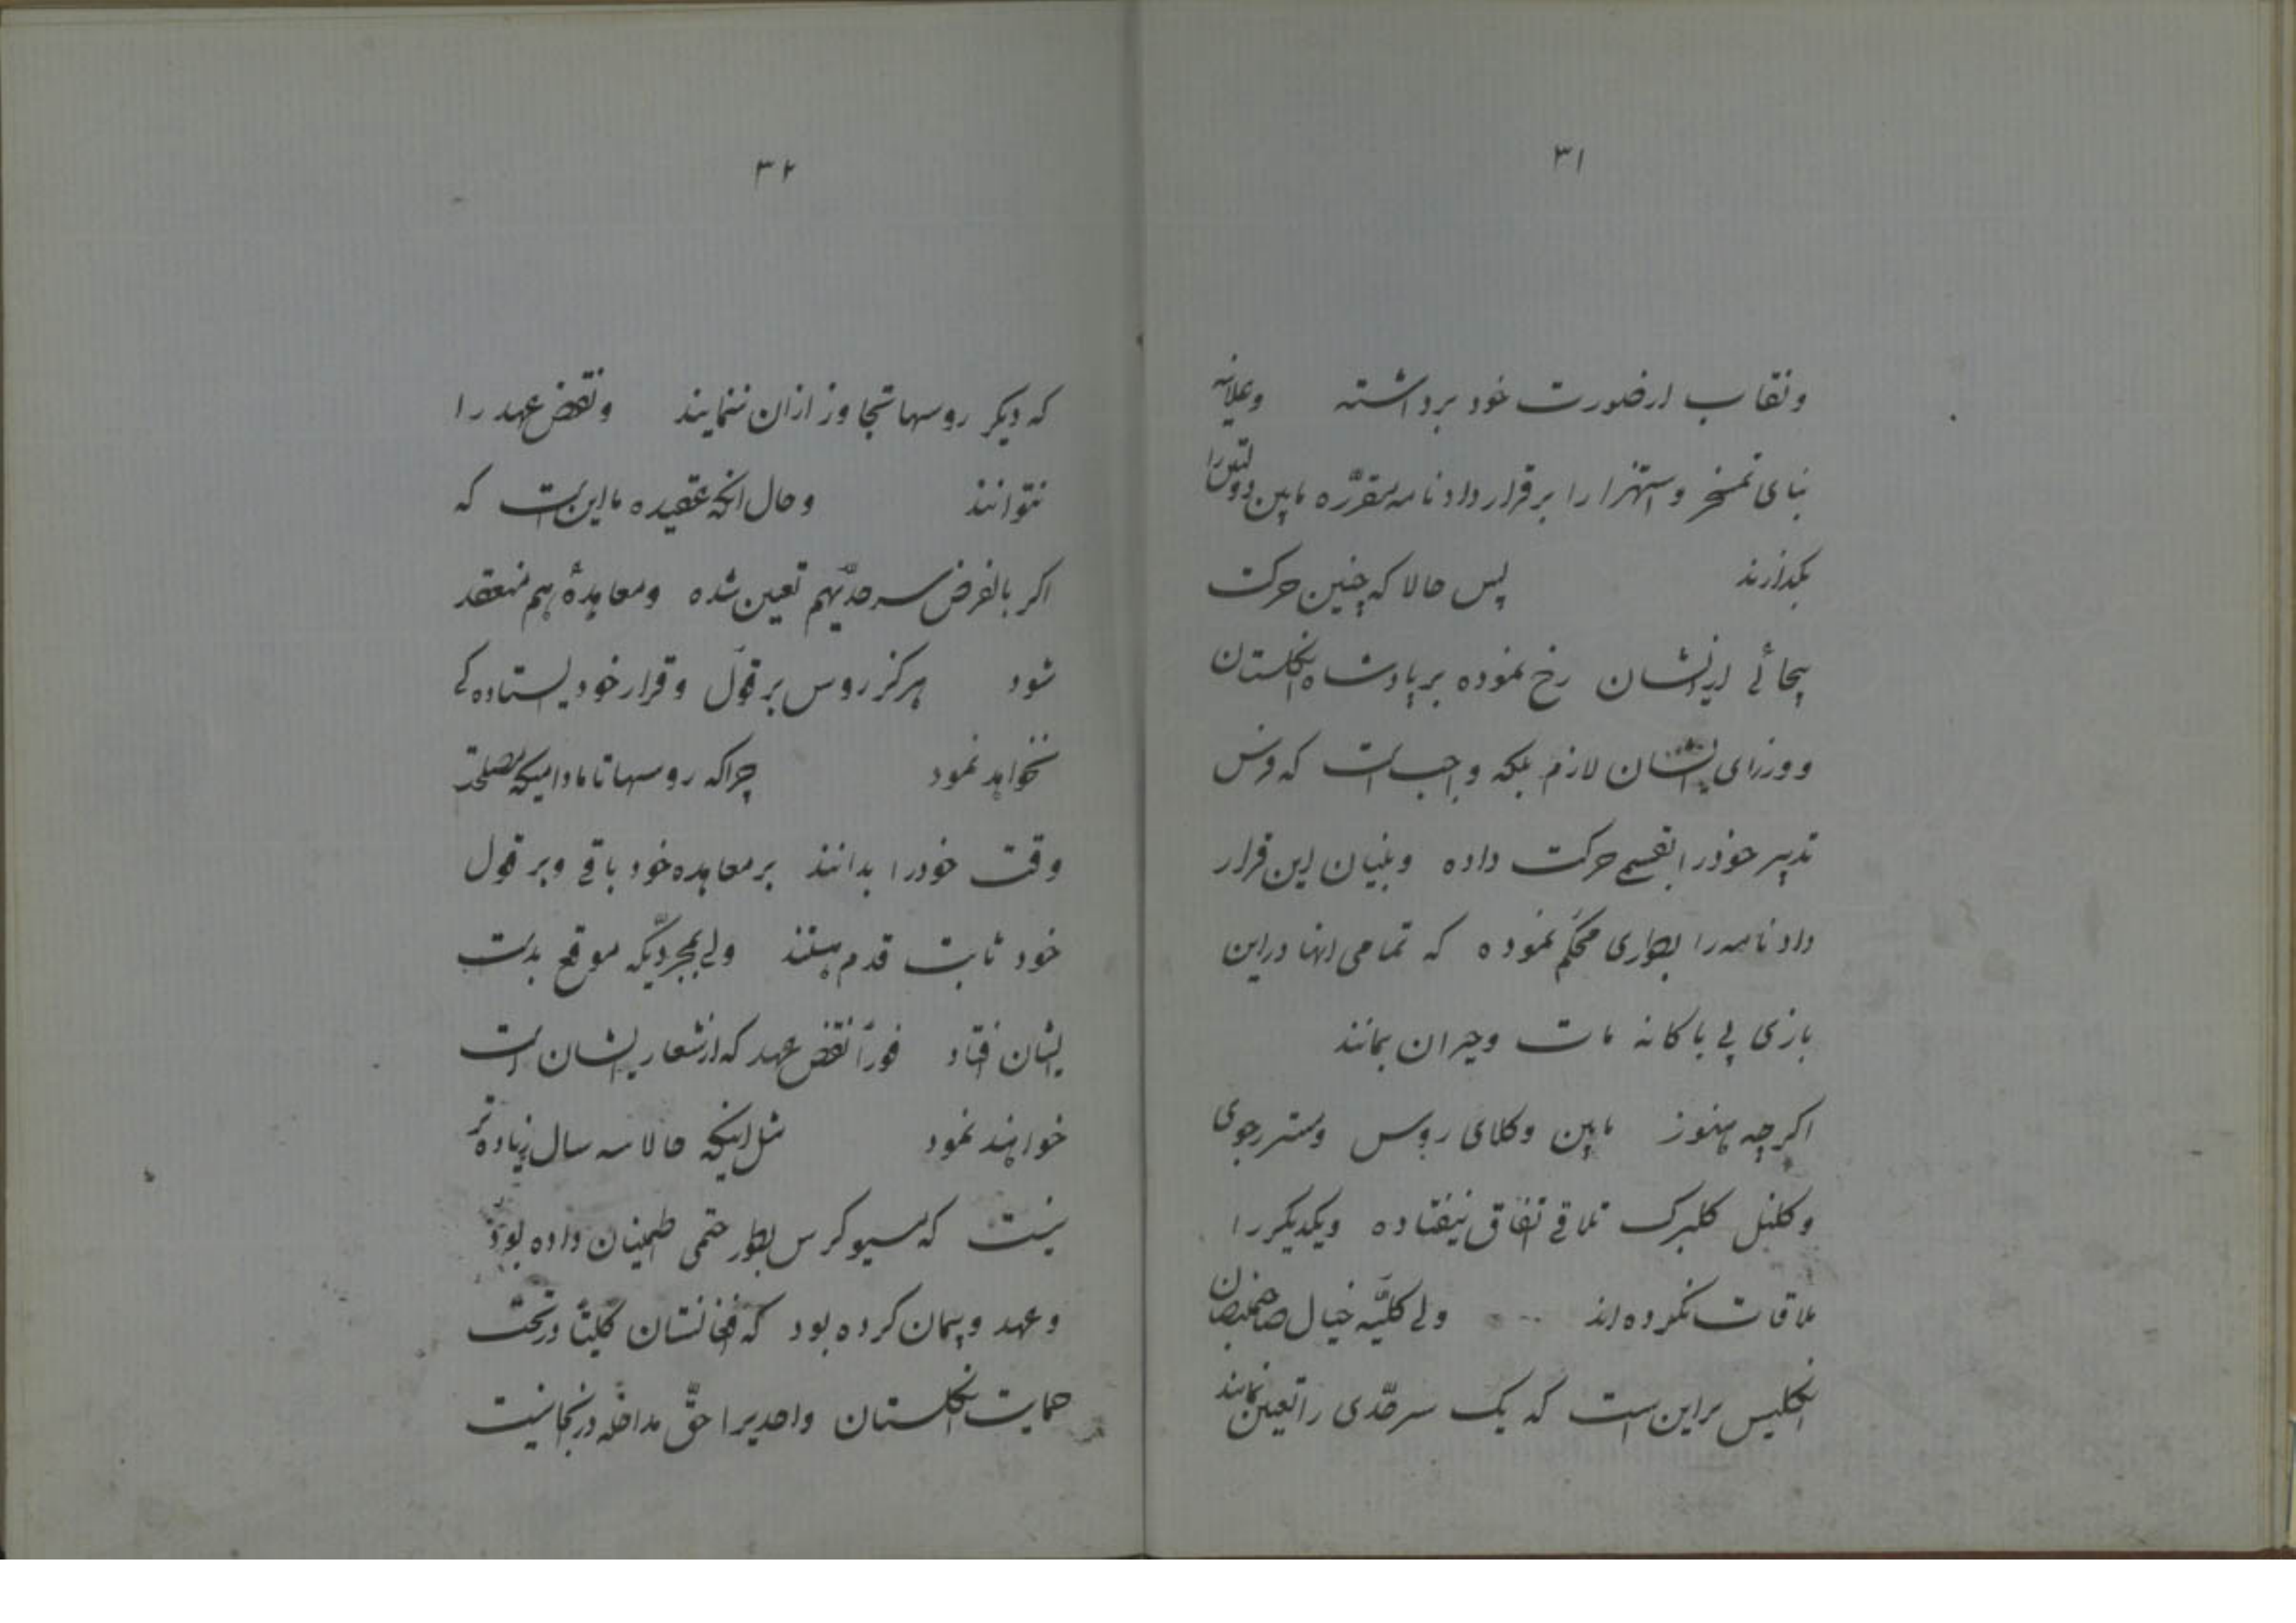 ۳۱
ونقاب از صورت خود برداشته وعلانیه
بنای تمسخر و استهزا را بر قرار داد نامه مقرّره مابین دولتین را
بگذارند پس حالا که چنین حرکت
بیجائی ازیشان رخ نموده بر پادشاه انگلستان
و وزرای ایشان لازم بلکه واجب است که فرس
تدبیر خودرا بقسمی حرکت داده وبنیان این قرار
داد نامه را بطوری محکم نموده که تمامی انها در این
بازی بی باکانه مات وحیران بمانند
اکرچه هنوز مابین وکلای روس ومستر جوی
وکلنل کلبرک تلاقی اتفاق نیفتاده ویکدیکر را
ملاقات نکرده اند ولی کلیّه خیال
انکلیس براین است که یک سرحدّی را تعین نمایند
۳۲
که دیکر روسها تجاوز ازان ننمایند ونقض عهد را
نتوانند وحال انکه عقیده ما این است که
اکر بالفرض سرحدّیهم تعین شده ومعاهدهٔ هم منعقد
شود هرکز روس بر قول وقرار خود ایستاده کی
نخواهد نمود چراکه روسها تا مادامیکه مصلحت
وقت خودرا بدانند بر معاهده خود باقی وبر قول
خود ثابت قدم هستند ولی بمجرّدیکه موقع بدست
ایشان افتاد فوراً نقض عهد که از شعار ایشان است
خواهند نمود مثل اینکه حالا سه سال زیاده تر
نیست که مسیو کرس بطور حتمی اطمینان داده بود
وعهد وپیمان کرده بود که افغانستان کلیتاً در تحت
حمایت انکلستان واحدیرا حقّ مداخله در انجا نیست